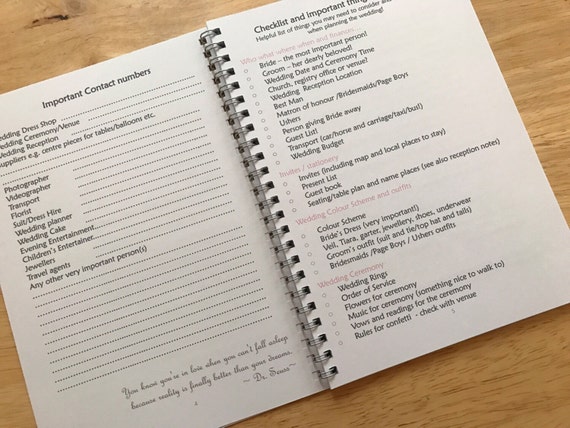 Important Contact numbers
edding Dress Shop
edding Ceremony/Venue
edding Reception
uppliers e.g. centre pieces for tables/balloons etc.
Photographer
Videographer
Transport
Florist
Suit/Dress Hire
Wedding planner
Wedding Cake
Evening Entertainment
Children's Entertainer
Jewellers
Travel agents
Any other very important person(s)
You know you're in love when you can't fall asleep
because reality is finally better than your dreams.
~ Dr. Seuss~
4
Checklist and important thing
Helpful list of things you may need to consider and
when planning the wedding!
Who what where when and finances
Bride – the most important person!
Groom – her dearly beloved!
Wedding Date and Ceremony Time
Church, registry office or venue?
Wedding Reception Location
Best Man
Matron of honour /Bridesmaids/Page Boys
Ushers
Person giving Bride away
Guest List!
Transport (car/horse and carriage/taxi/bus!)
Wedding Budget
Invites / stationery
Invites (including map and local places to stay)
Present List
Guest book
Seating/table plan and name places (see also reception notes)
Wedding Colour Scheme and outfits
Colour Scheme
Bride's Dress (very important!)
Veil, Tiara, garter, jewellery, shoes, underwear
Groom's outfit (suit and tie/top hat and tails)
Bridesmaids /Page Boys / Ushers outfits
Wedding Ceremony
Wedding Rings
Order of Service
Flowers for ceremony
Music for ceremony (something nice to walk to)
Vows and readings for the ceremony
Rules for confetti - check with venue
5